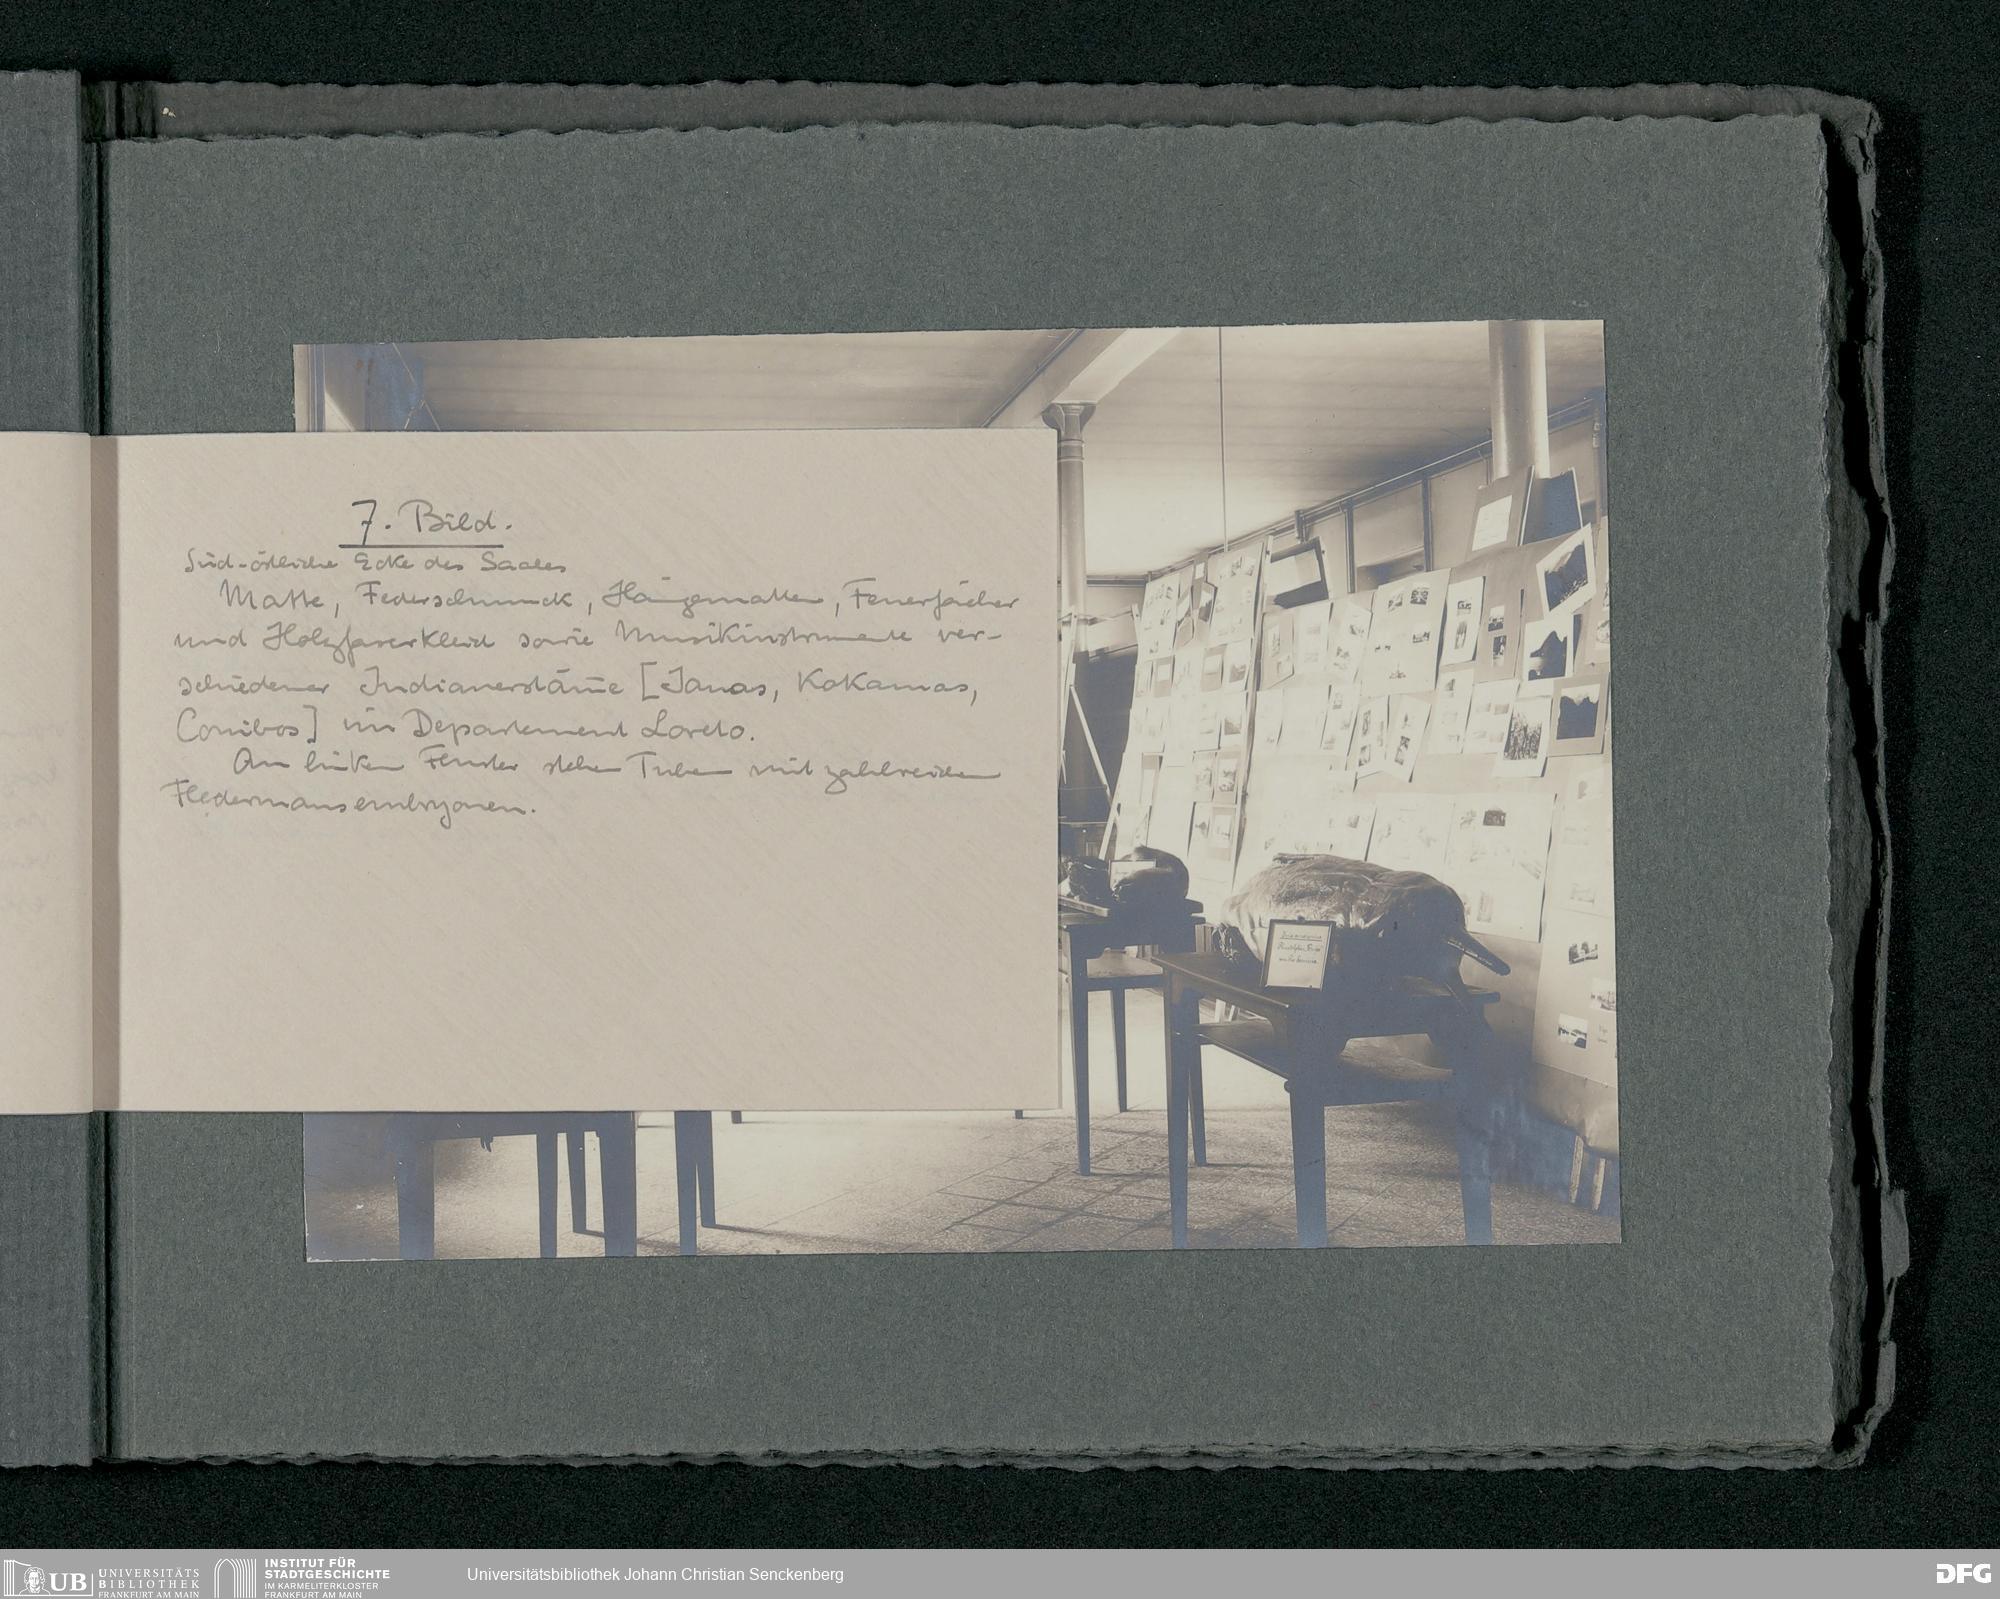 7. Bild.
Süd-östliche Ecke des Saales
Matte, Federschmuck, Hängematten, Feuerfächer
und Holzfaserkleid sowie Musikinstrumente ver-
schiedener Indianerstäm̅e [Janas, Kokamas,
Conibos] im Departement Loreto.
Am linken Fenster stehen Tuben mit zahlreichen
Fledermausembryonen.
UB
UNIVERSITÄTS
BIBLIOTHEK
FRANKFURT AM MAIN
INSTITUT FÜR
STADTGESCHICHTE
IM KARMELITERKLOSTER
FRANKFURT AM MAIN
Universitätsbibliothek Johann Christian Senckenberg
DFG